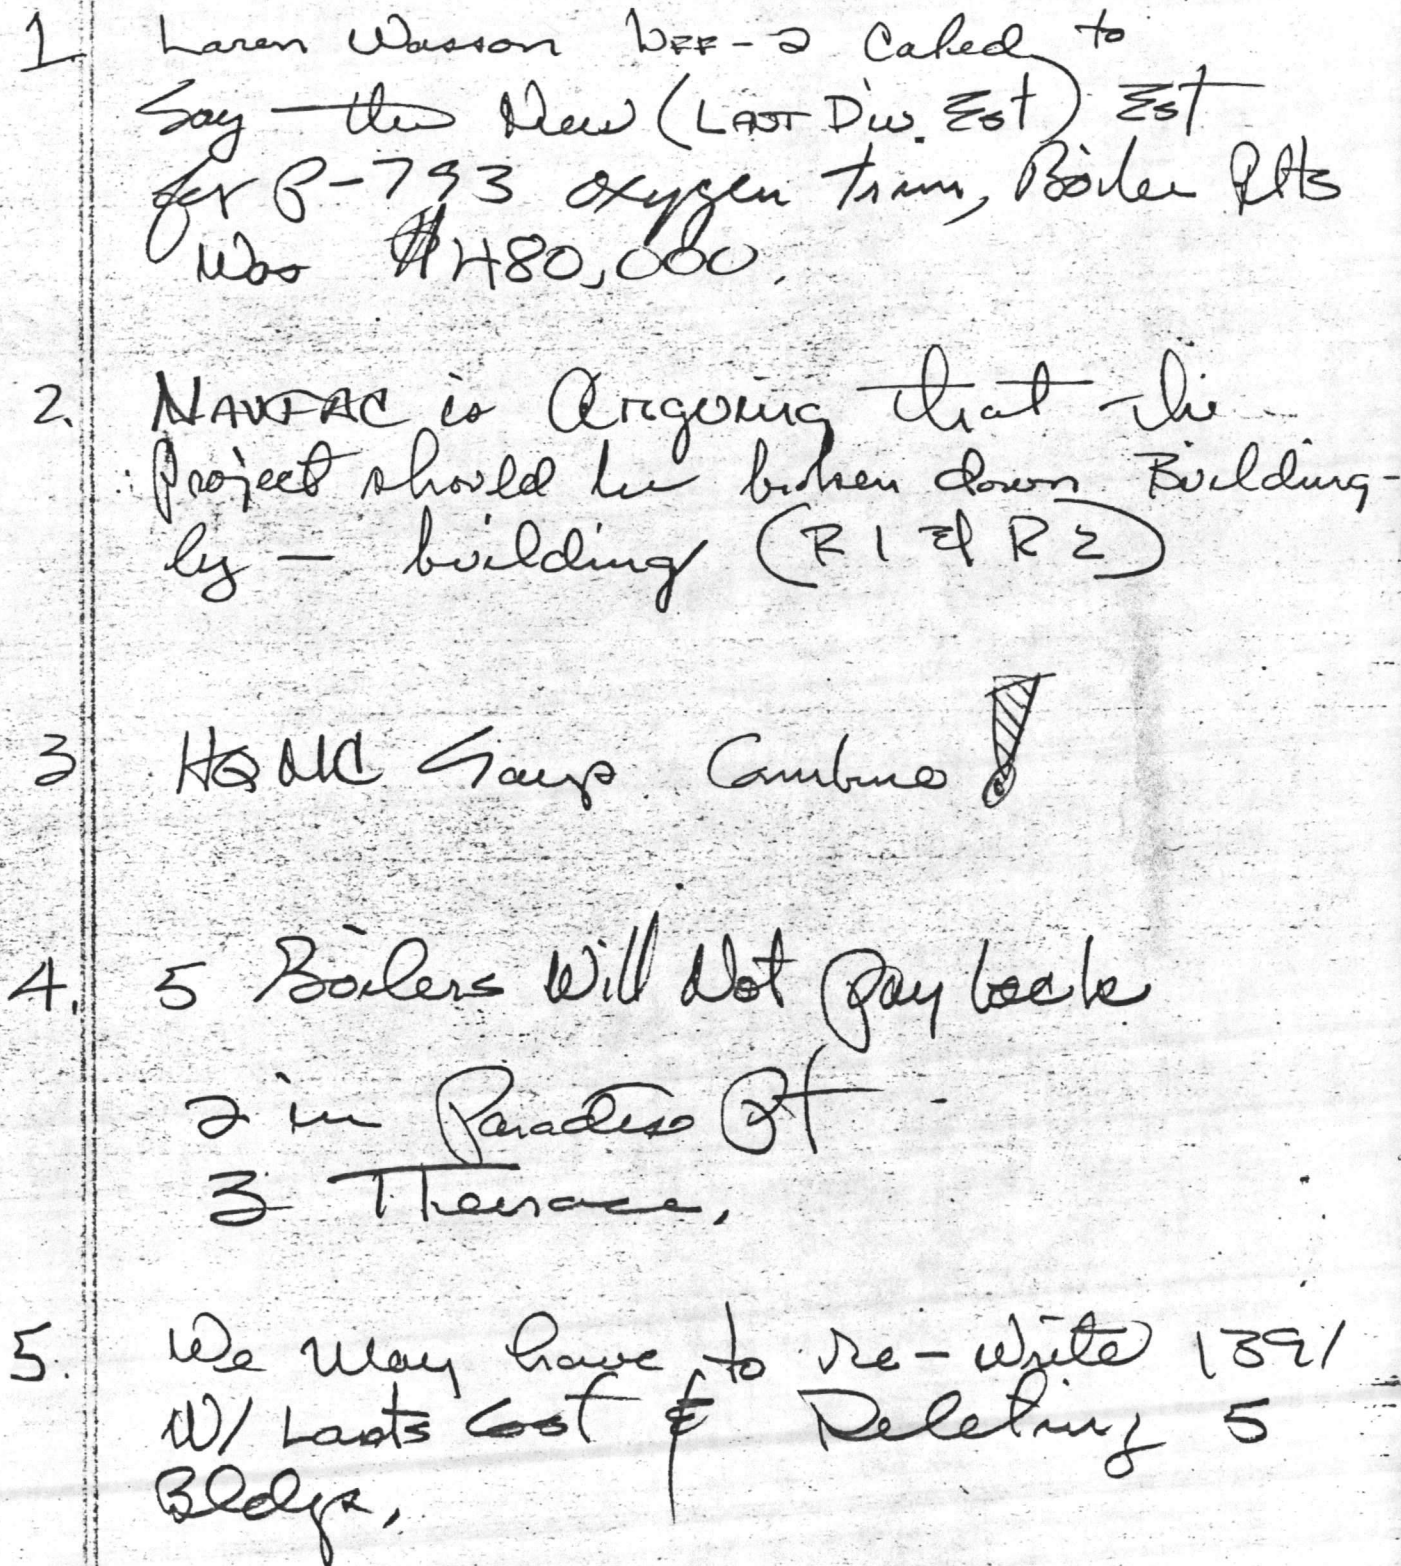 1. Laren Wasson LFF-2 Called to
Say the New (LANT Div. Est) Est
for P-793 oxygen trim, Boiler Plts
Was $480,000.
2. NAVFAC is Arguing that the
project should be broken down Building-
by - building (R1 & R2)
3 HQMC Says Combine!
4. 5 Boilers Will Not pay back
2 in Paradise Pt
3 Terrace.
5. We May have to re-write 1391
W/ Lants Cost & Deleting 5
Bldgs.